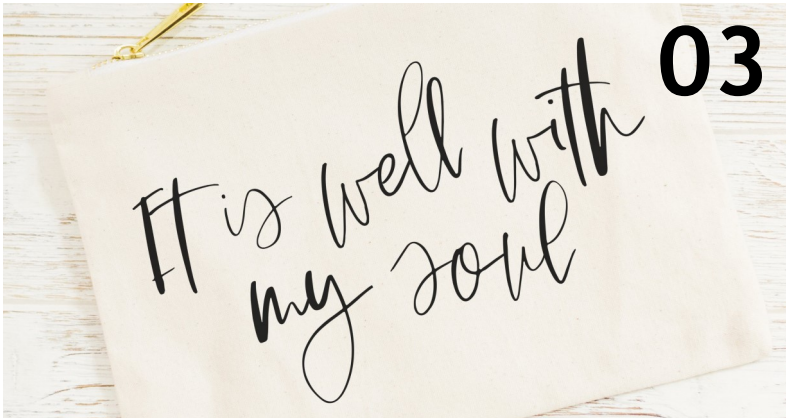 03
It is well with
my soul